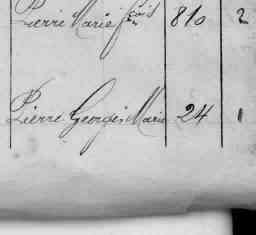 Pierre Marie fçois 810 2
Pierre Georges Marie 24 1